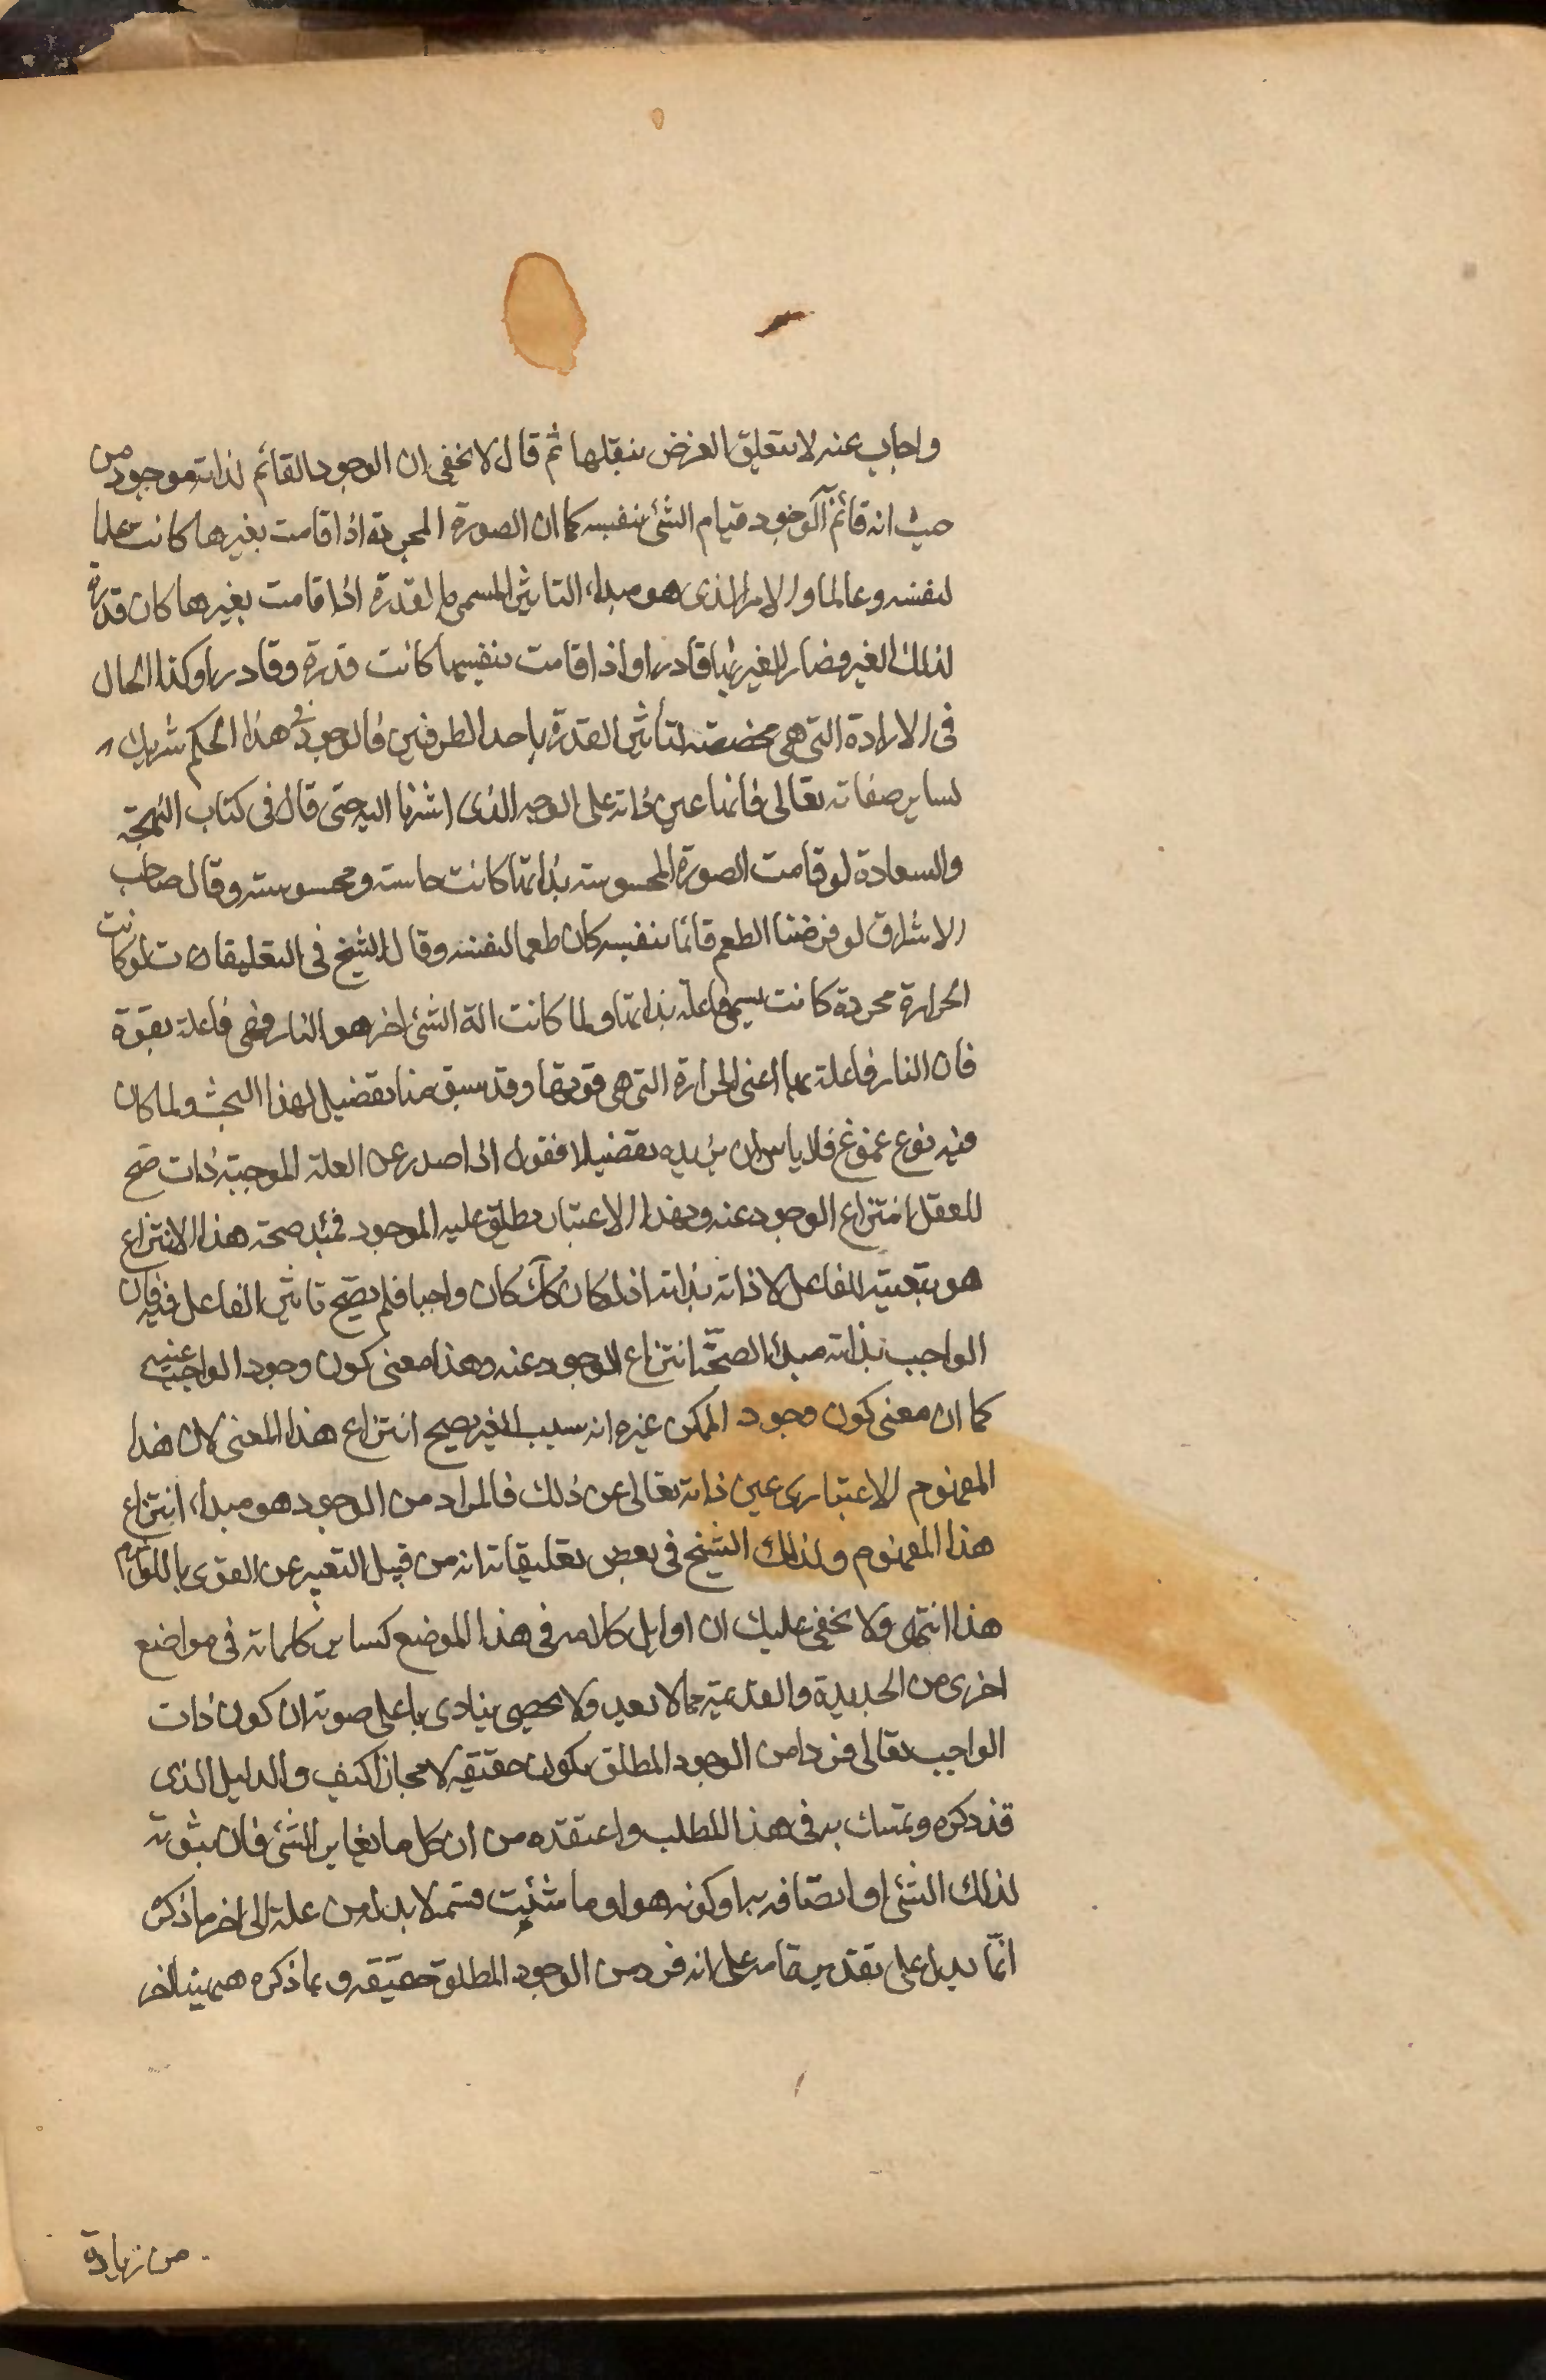 واجاب عنه لا يتعلق الغرض بنقلها ثم قال لا يخفى ان الوجود القائم لذاته موجود من
حيث انه قائم الوجود قيام الشئ بنفسه كما ان الصورة المجردة اذا قامت بغيرها كانت علما
لنفسه وعالما والامر الذى هو مبداء التاثير المسمى بالقدرة اذا قامت بغيرها كان قدرة
لذلك الغير وصار الغير بها قادرا واذا قامت بنفسها كانت قدرة وقادرا وكذا الحال
فى الارادة التى هى مخصصة لتأثير القدرة باحد الطرفين فالوجود فى هذا الحكم شريك
لساير صفاته تعالى فانها عين ذاته على الوجه الذى اشرنا اليه حتى قال فى كتاب البهجة
والسعادة لو قامت الصورة المحسوسة بذاتها كانت حاسة ومحسوسة وقال صاحب
الاشراق لو فرضنا الطعم قائما بنفسه كان طعما لنفسه وقال الشيخ فى التعليقات لو كانت
الحرارة مجردة كانت يسمى فاعلة بذاتها ولما كانت الة لشئ اخر هو النار فهى فاعلة بقوة
فان النار فاعلة بها اعنى الحرارة التى هى قوتها وقد سبق منا تفصيل لهذا البحث ولما كان
فيه نوع غموض فلا باس ان نزيده تفصيلا فنقول اذا صدر عن العلة الموجبة ذات صح
للعقل انتزاع الوجود عنه وبهذا الاعتبار يطلق عليه الموجود فمبدء صحة هذا الانتزاع
هو بتبعية الفاعل لا ذاته بذاته اذ لو كان كك كان واجبا فلم يصح تاثير الفاعل فيه فان
الواجب بذاته مبدا لصحة انتزاع الوجود عنه وهذا معنى كون وجود الواجب عينه
كما ان معنى كون وجود الممكن غيره انه بسبب الغير يصح انتزاع هذا المعنى لا ان هذا
المفهوم الاعتبارى عين ذاته تعالى عن ذلك فالمراد من الوجود هو مبداء انتزاع
هذا المفهوم ولذلك الشيخ فى بعض تعليقاته انه من قبيل التعبير عن القوى باللوازم
هذا انتهى ولا يخفى عليك ان اوايل كلامه فى هذا الموضع كساير كلماته فى مواضع
اخرى من الجديدة والقديمة مما لا يعد ولا يحصى ينادى باعلى صوته ان كون ذات
الواجب تعالى فردا من الوجود المطلق يكون حقيقة لا مجازا كيف والدليل الذى
قد ذكره وتمسك به فى هذا المطلب واعتقده من ان كل ما يغاير الشئ فان ثبوته
لذلك الشئ او اتصافه به او كونه هو او ما شئت فسمه لا بد له من علة الى اخر ما ذكره
انما يدل على تقدير تمامه على انه فرد من الوجود المطلق حقيقة وبما ذكره
من زيادة